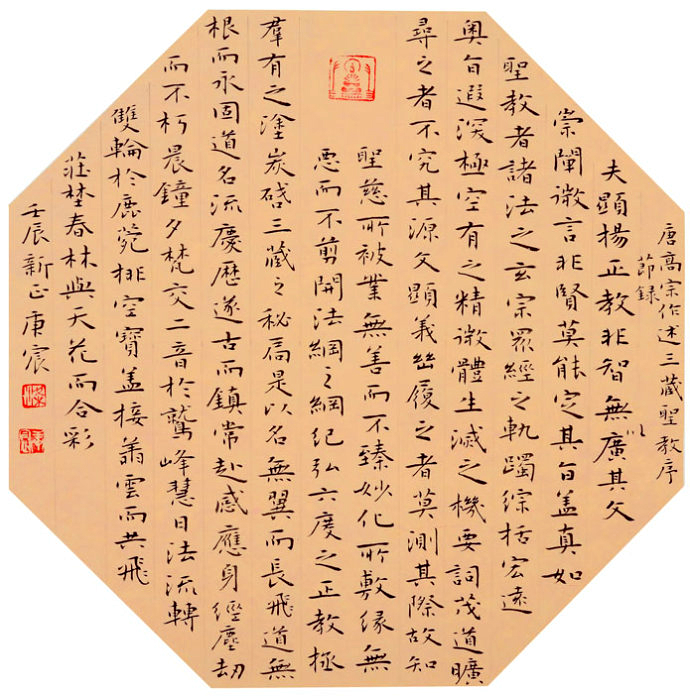 唐高宗作述三藏聖教序
節錄
夫顯揚正教非智無以廣其文
崇闡微言非賢莫能定其旨蓋真如
聖教者諸法之玄宗眾經之軌躅綜括宏遠
奧旨遐深極空有之精微體生滅之機要詞茂道曠
尋之者不究其源文顯義幽履之者莫測其際故知
聖慈所被業無善而不臻妙化所敷緣無
惡而不剪開法綱之綱紀弘六度之正教拯
羣有之塗炭啓三藏之秘扃是以名無翼而長飛道無
根而永固道名流慶歷遂古而鎮常赴感應身經塵劫
而不朽晨鐘夕梵交二音於鷲峰慧日法流轉
雙輪於鹿菀排空寶蓋接翔雲而共飛
莊埜春林與天花而合彩
壬辰新正庚宸